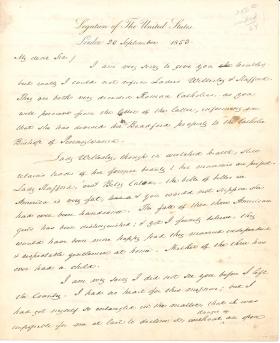 Legation of The United States
London 20 September 1853
My dear Sir/
I am very sorry to give you trouble
but really I could not refuse Ladies Wellesley & Stafford.
They are both very decided Roman Catholics, as you
will perceive from the letter of the latter, informing you
that she has deeded the Bradford property to the Catholic
Bishop of Pennsylvania.
Lady Wellesley, though in wretched health, still
retains traces of her former beauty & her manners are perfect.
Lady Stafford, once Betsy Caton, the belle of belles in
America is very fat, and you would not suppose she
had ever been handsome. The fate of these three American
girls has been distinguished; & yet I firmly believe they
would have been more happy had they married independent
& respectable gentlemen at home. Neither of the three has
ever had a child.
I am very sorry I did not see you before I left
the Country. I had no heart for this mission; but I
had got myself so entangled in the matter, that it was
impossible for me at last to decline it without danger of an open